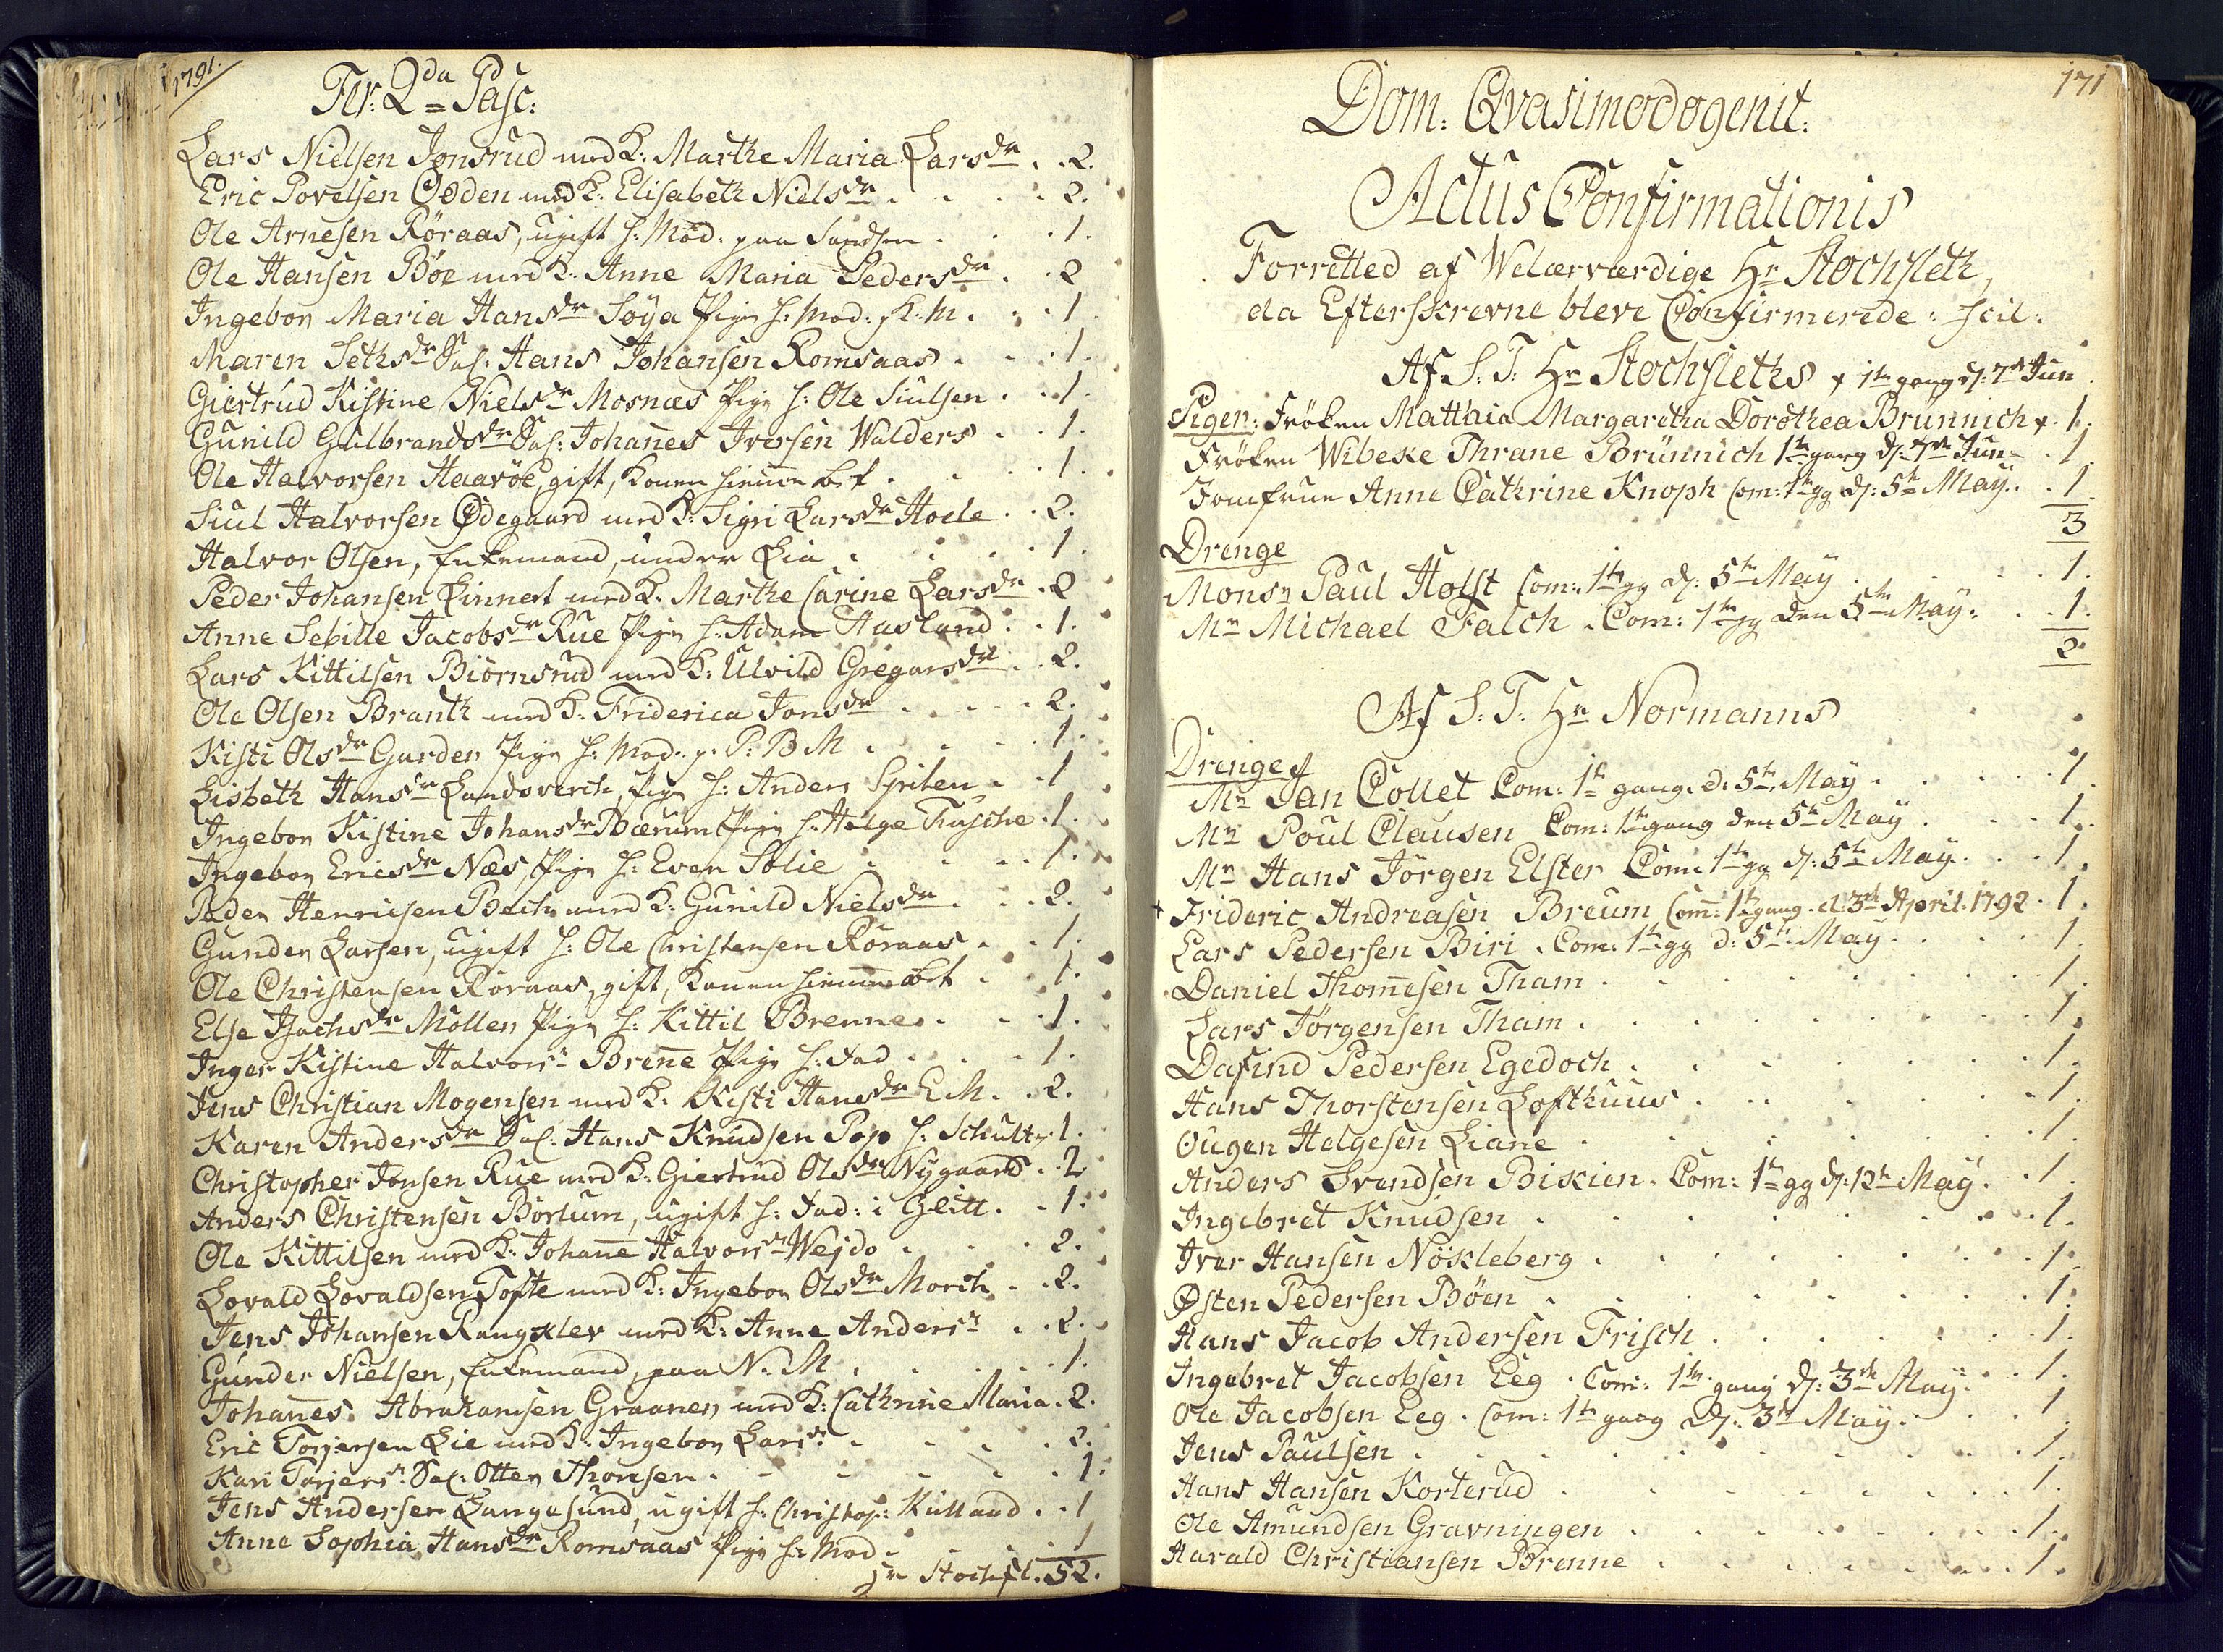 1791.
Fer: 2da Pasc:
Lars Nielsen Jonsrud med K: Marthe Maria Larsdr . . 2.
Eric Povelsen Odden med K: Elisabeth Nielsdr . . . . 2.
Ole Arnesen Röraas, ugift h: Mod: paa Sandsen . . . 1.
Ole Hansen Böe med K: Anne Maria Pedersdr . . 2
Ingebor Maria Hansdr Söya Pige h: Mod: K: M. . . 1.
Maren Sethsdr Sal: Hans Johansen Romsaas . . . 1.
Giertrud Kistine Nielsdr Mosnæs Pige h: Ole Siulsen . . 1.
Gunild Gulbrandsdr Sal: Johanes Iversen Walders . . 1.
Ole Halvorsen Haavöe, gift, Konen hiemme . . . 1.
Siul Halvorsen Ødegaard med K: Sigri Larsdr Hoele . . 2.
Halvor Olsen, Enkemand, under Lia . . . . 1.
Peder Johansen Linnert med K: Marthe Carine Larsdr . 2
Anne Sebille Jacobsdr Rue Pige h: Adam Aasland . . 1.
Lars Kittilsen Biörnsrud med K: Ulvild Gregarsdr . . 2.
Ole Olsen Branth med K: Friderica Jonsdr . . . . 2.
Kisti Olsdr Garder Pige h: Mod: p: P: B M . . . . 1.
Lisbeth Hansdr Landsverch, Pige h: Anders Spiten . . 1
Ingebor Kistine Johansdr Bærum Pige h: Helge Fusche . 1.
Ingebor Ericsdr Næs, Pige h: Even Solie . . . . 1.
Peder Henricsen Bache med K: Gunild Nielsdr . . . 2.
Gunder Larsen, ugift h: Ole Christensen Röraas . . 1.
Ole Christensen Röraas, gift, Konen hiemme . . 1.
Else Isachsdr Möller Pige h: Kittil Brenne . . . 1.
Inger Kistine Halvorsdr Brenne Pige h: Fad . . . . 1.
Jens Christian Mogensen med K: Kisti Hansdr E. M. . 2.
Karen Andersdr Sal: Hans Knudsen Pop h: Schultz 1.
Christopher Jonsen Rue med K: Giertrud Olsdr Nygaard . . 2
Anders Christensen Börtum, ugift h: Fad: i Glitt. . . 1.
Ole Kittilsen med K: Johanne Halvorsdr Wejdo . . . 2.
Lovald Lovaldsen Tofte med K: Ingebor Olsdr Morch . . 2.
Jens Johansen Rangklev med K: Anne Andersdr . . 2.
Gunder Nielsen, Enkemand, paa N. M . . . . . 1.
Johanes Abrahamsen Graaner med K: Cathrine Maria . 2.
Eric Torjersen Lie med K: Ingebor Larsdr . . . . 2.
Kari Torjersdr Sal: Otter Thorsen . . . . . . 1.
Jens Andersen Langesund, ugift h: Christop: Kulland . . 1
Anne Sophia Hansdr Romsaas Pige h: Mod . . . . 1
Hr Stochfl. 52.
171
Dom: Qvasimodogenit:
Actus Confirmationis
Forretted af Welærværdige Hr Stochfleth,
da Efterskrevne bleve Confirmerede: scil:
Af S: T: Hr Stochfleths + 1te gang d: 7de Jun.
Piger: Fröken Matthia Margaretha Dorothea Brünnich + . 1.
Fröken Wibeke Thrane Brünnich 1te gang d: 7de Jun . . 1
Jomfrue Anne Cathrine Knoph Com: 1te gg d: 5te May . . 1
3
Drenge
Monsr Paul Holst Com: 1te gg d: 5te May . . . . 1.
Mr Michael Falch . Com: 1te gg den 5te May . . . 1.
2.
Af S: T: Hr Normanns
Drenge
Mr Jan Collet Com: 1te gang d: 5te May . . . . . 1
Mr Poul Clausen Com: 1te gang den 5te May . . . . 1.
Mr Hans Jörgen Elster Com: 1te gg d: 5te May . . . 1.
+ Frideric Andreasen Breum Com: 1te gang d. 3de April. 1792 . 1.
Lars Pedersen Biri . Com: 1te gg d: 5te May . . . . 1.
Daniel Thommesen Tham . . . . . . . . 1.
Lars Jörgensen Tham . . . . . . . . 1.
Dafind Pedersen Egedoch . . . . . . . 1.
Hans Thorstensen Lofthuus . . . . . . . 1.
Ougen Helgesen Liane . . . . . . . 1.
Anders Svendsen Bikien . Com: 1te gg d: 12te May . . 1.
Ingebret Knudsen . . . . . . . . 1.
Iver Hansen Nökleberg . . . . . . . 1.
Østen Pedersen Böen . . . . . . . 1.
Hans Jacob Andersen Frisch . . . . . . . 1.
Ingebret Jacobsen Eeg . Com: 1te gang d: 3de May . . 1.
Ole Jacobsen Eeg . Com: 1te gang d: 3de May . . . 1
Jens Paulsen . . . . . . . . . 1.
Hans Hansen Korterud . . . . . . . 1.
Ole Amundsen Gravningen . . . . . . . 1.
Harald Christiansen Brenne . . . . . . . 1.